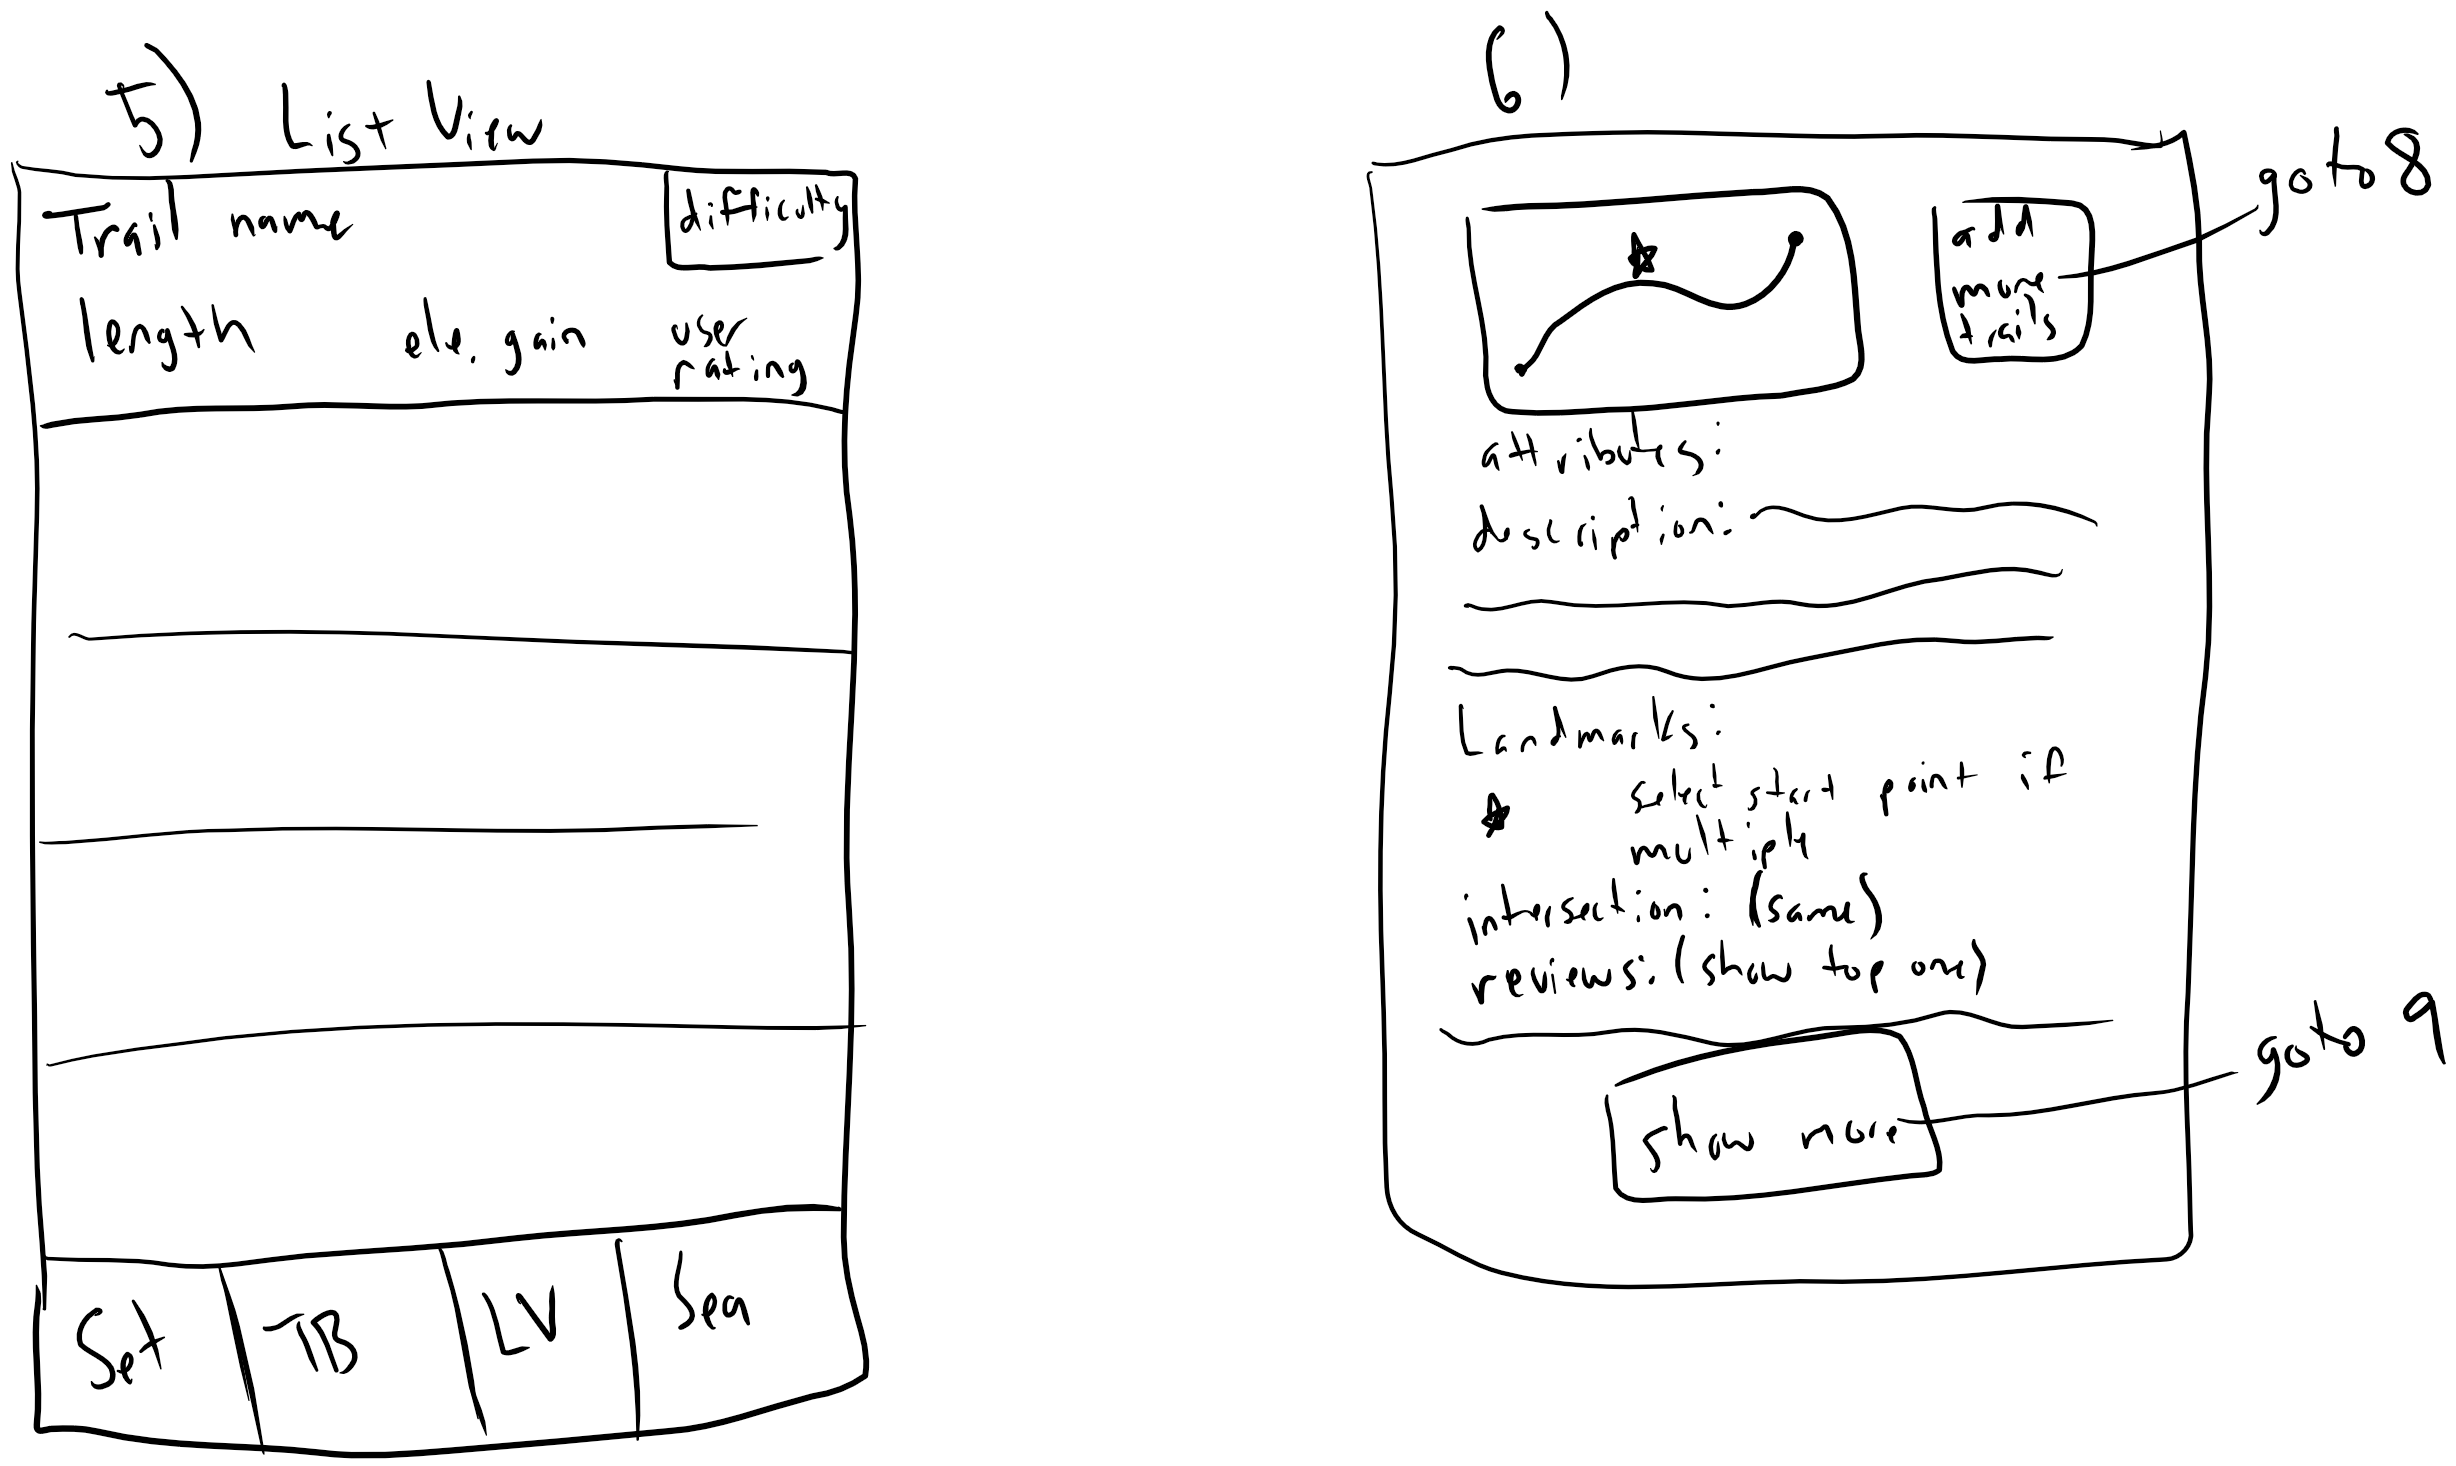 5) List View
Trail name difficulty
length ele. gain user
rating
Set TB LV Sea
6)
go to 8
add
more
trails
attributes:
description:
Landmarks:
select start point if
multiple
intersection: (same)
reviews: (show top one)
show more
go to 9